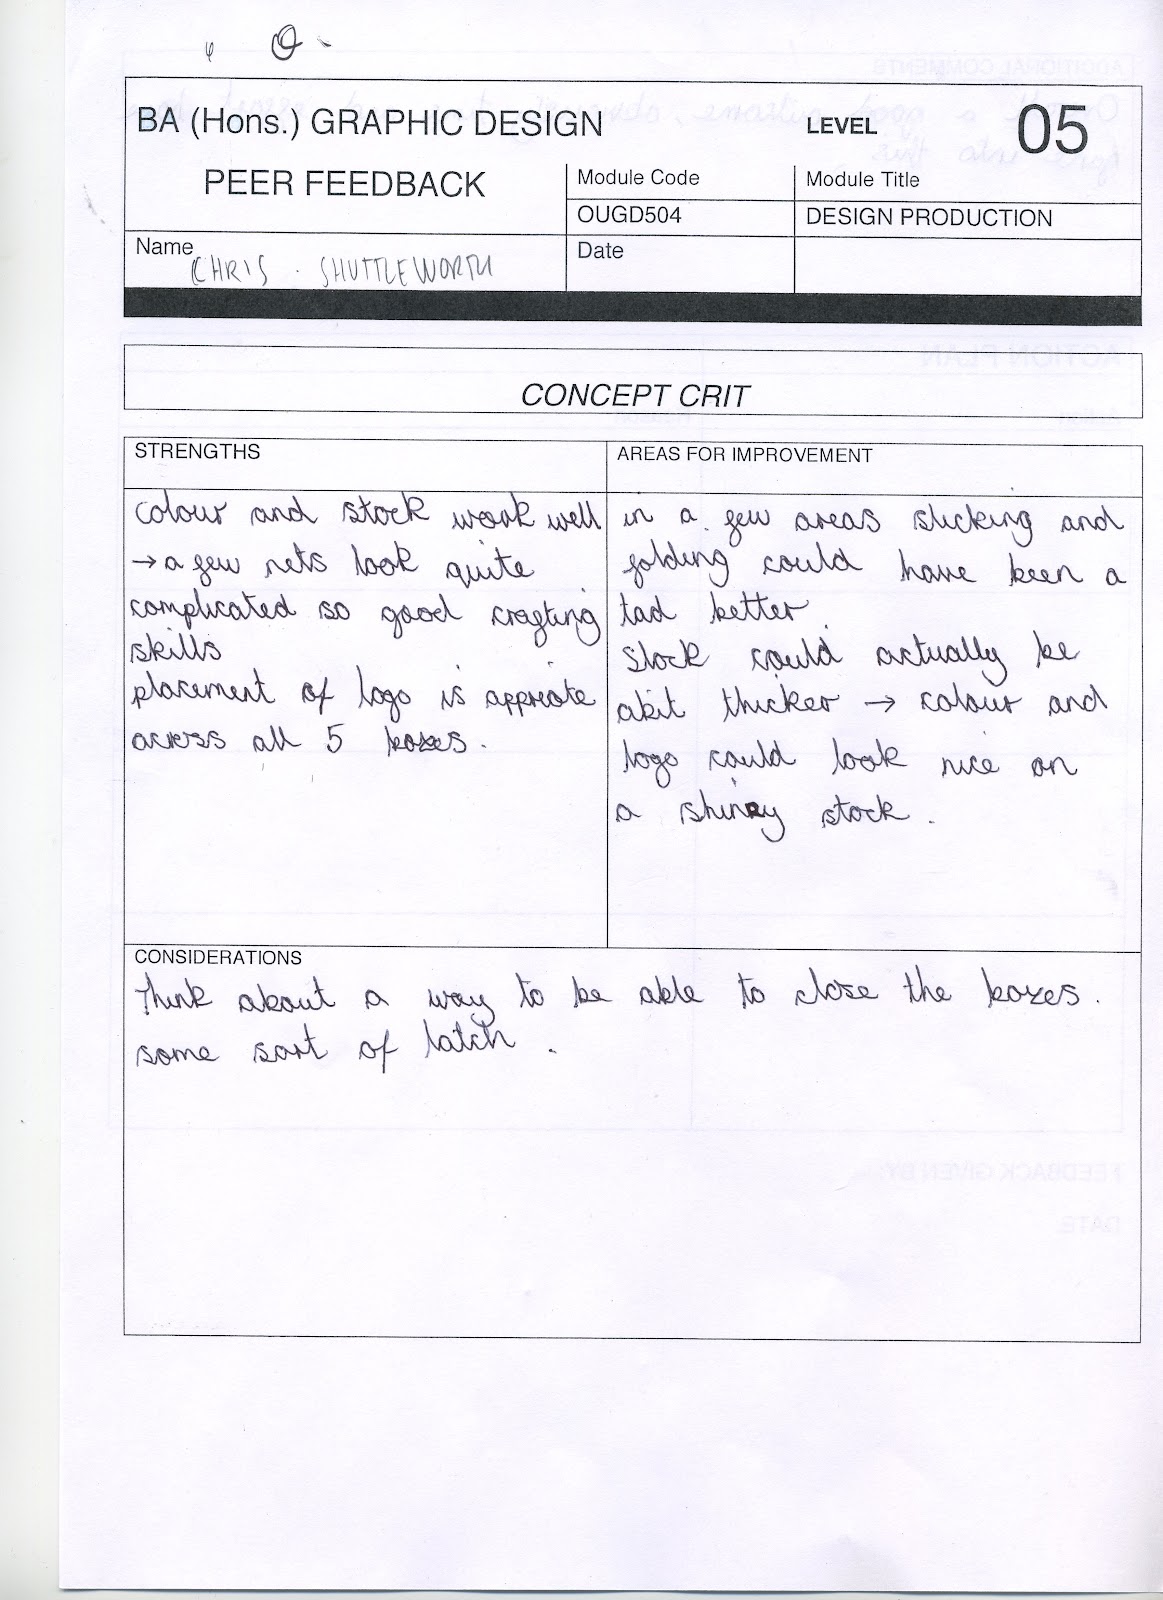 BA (Hons.) GRAPHIC DESIGN
LEVEL 05
PEER FEEDBACK
Module Code
Module Title
OUGD504
DESIGN PRODUCTION
Name CHRIS. SHUTTLEWORTH
Date
CONCEPT CRIT
STRENGTHS
colour and stock work well
→ a few nets look quite
complicated so good crafting
skills
placement of logo is appriate
across all 5 boxes.
AREAS FOR IMPROVEMENT
in a few areas sticking and
folding could have been a
tad better.
Stock could actually be
abit thicker → colour and
logo could look nice on
a shiney stock.
CONSIDERATIONS
Think about a way to be able to close the boxes.
some sort of latch.
ADDITIONAL COMMENTS
Overall a good outcome, obviously time and effort has
gone into this
ACTION PLAN
FEEDBACK GIVEN BY:
DATE